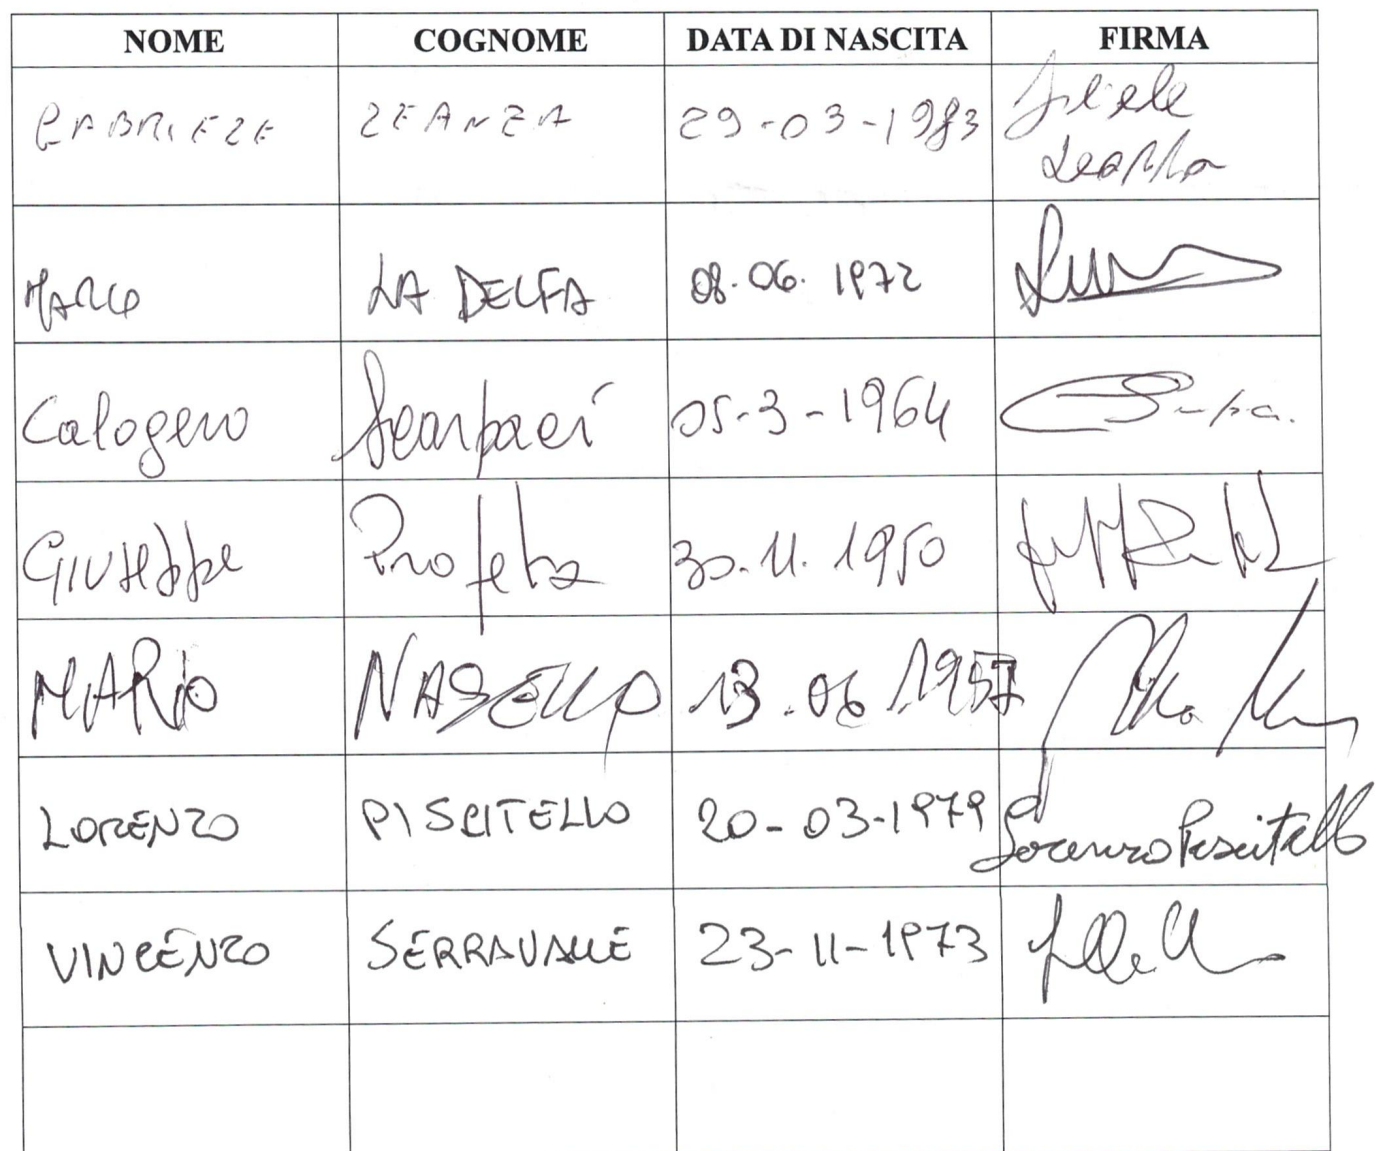 NOME COGNOME DATA DI NASCITA FIRMA
GABRIELE LEANZA 29-03-1983
MARCO LA DELFA 08.06.1972
Calogero Scarpaci 05-3-1964
GIUSEPPE Profeta 30.11.1950
MARIO NASELLO 13.06 1957
LORENZO PISCITELLO 20-03-1979 Lorenzo Piscitello
VINCENZO SERRAVALLE 23-11-1973